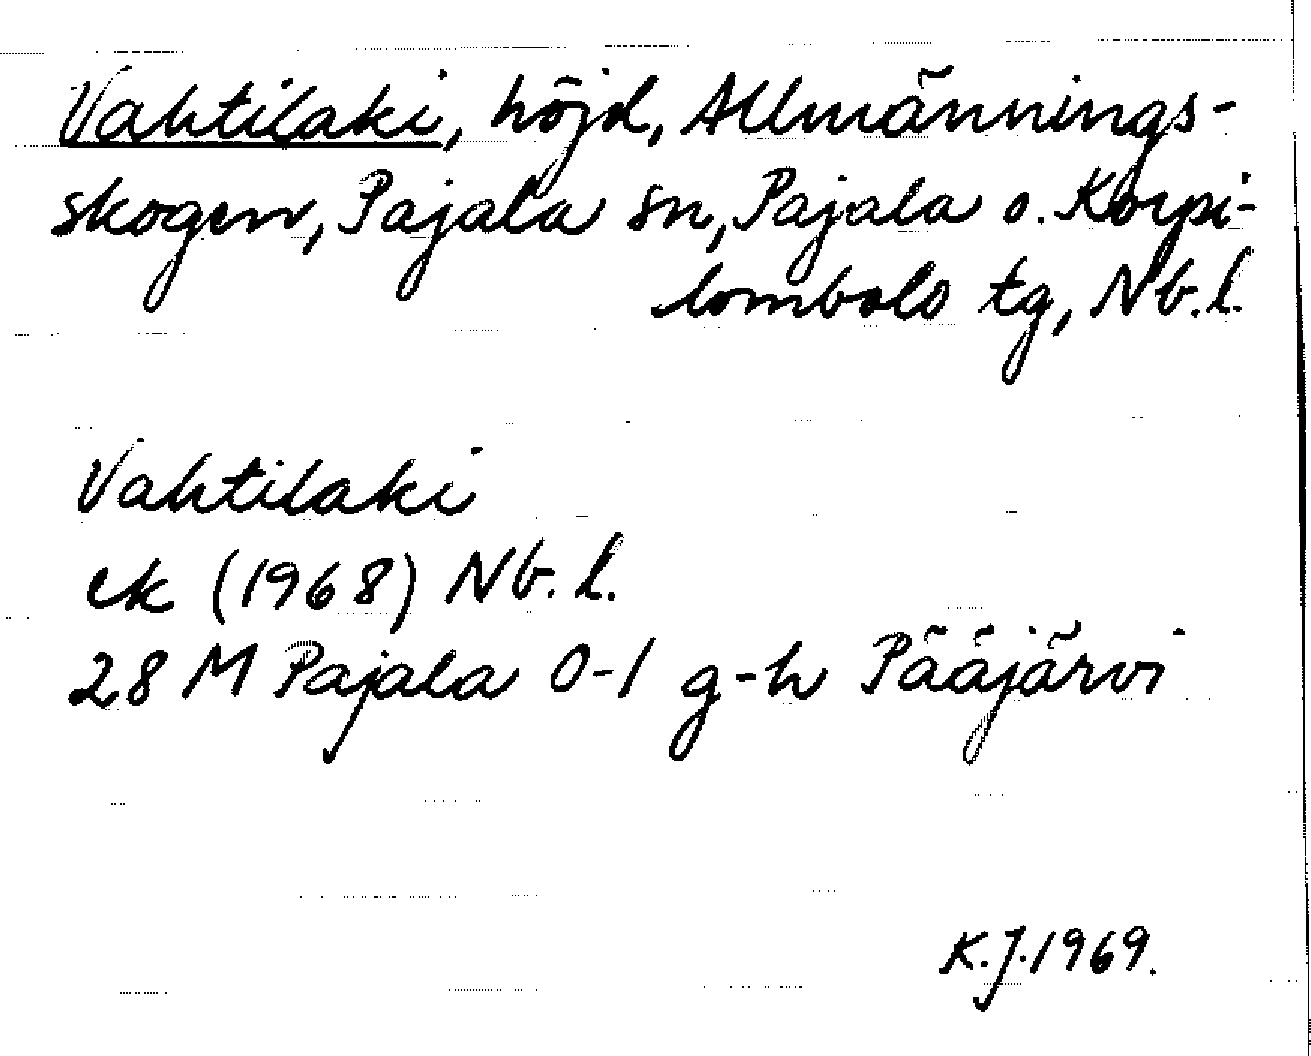 Vahtilaki, höjd, Allmännings-
skogen, Pajala sn, Pajala o. Korpi-
lombolo tg, Nb. l.
Vahtilaki
ek (1968) Nb. l.
28 M Pajala 0-1 g-h Pääjärvi
K.J. 1969.